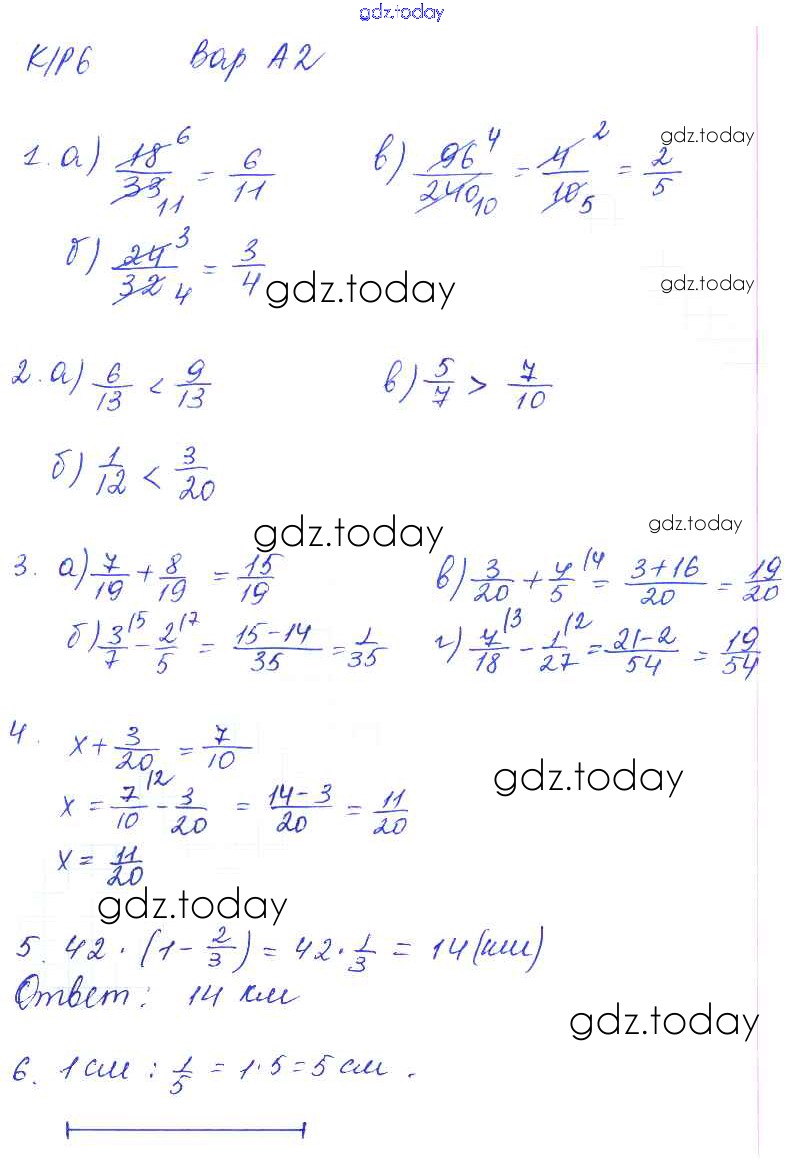 gdz.today
К/Р6 Вар А2
1. а) 18/33 ⁶/₁₁ = 6/11 в) 96/240 ⁴/₁₀ = 4/10 ²/₅ = 2/5 gdz.today
б) 24/32 ³/₄ = 3/4 gdz.today gdz.today
2. а) 6/13 < 9/13 в) 5/7 > 7/10
б) 1/12 < 3/20
gdz.today gdz.today
3. а) 7/19 + 8/19 = 15/19 в) 3/20 + 4/5 |4 = 3+16/20 = 19/20
б) 3/7 |5 - 2/5 |7 = 15-14/35 = 1/35 г) 7/18 |3 - 1/27 |2 = 21-2/54 = 19/54
4. x + 3/20 = 7/10
gdz.today
x = 7/10 |2 - 3/20 = 14-3/20 = 11/20
x = 11/20
gdz.today
5. 42 · (1 - 2/3) = 42 · 1/3 = 14 (км)
Ответ: 14 км
gdz.today
6. 1 см : 1/5 = 1·5 = 5 см.